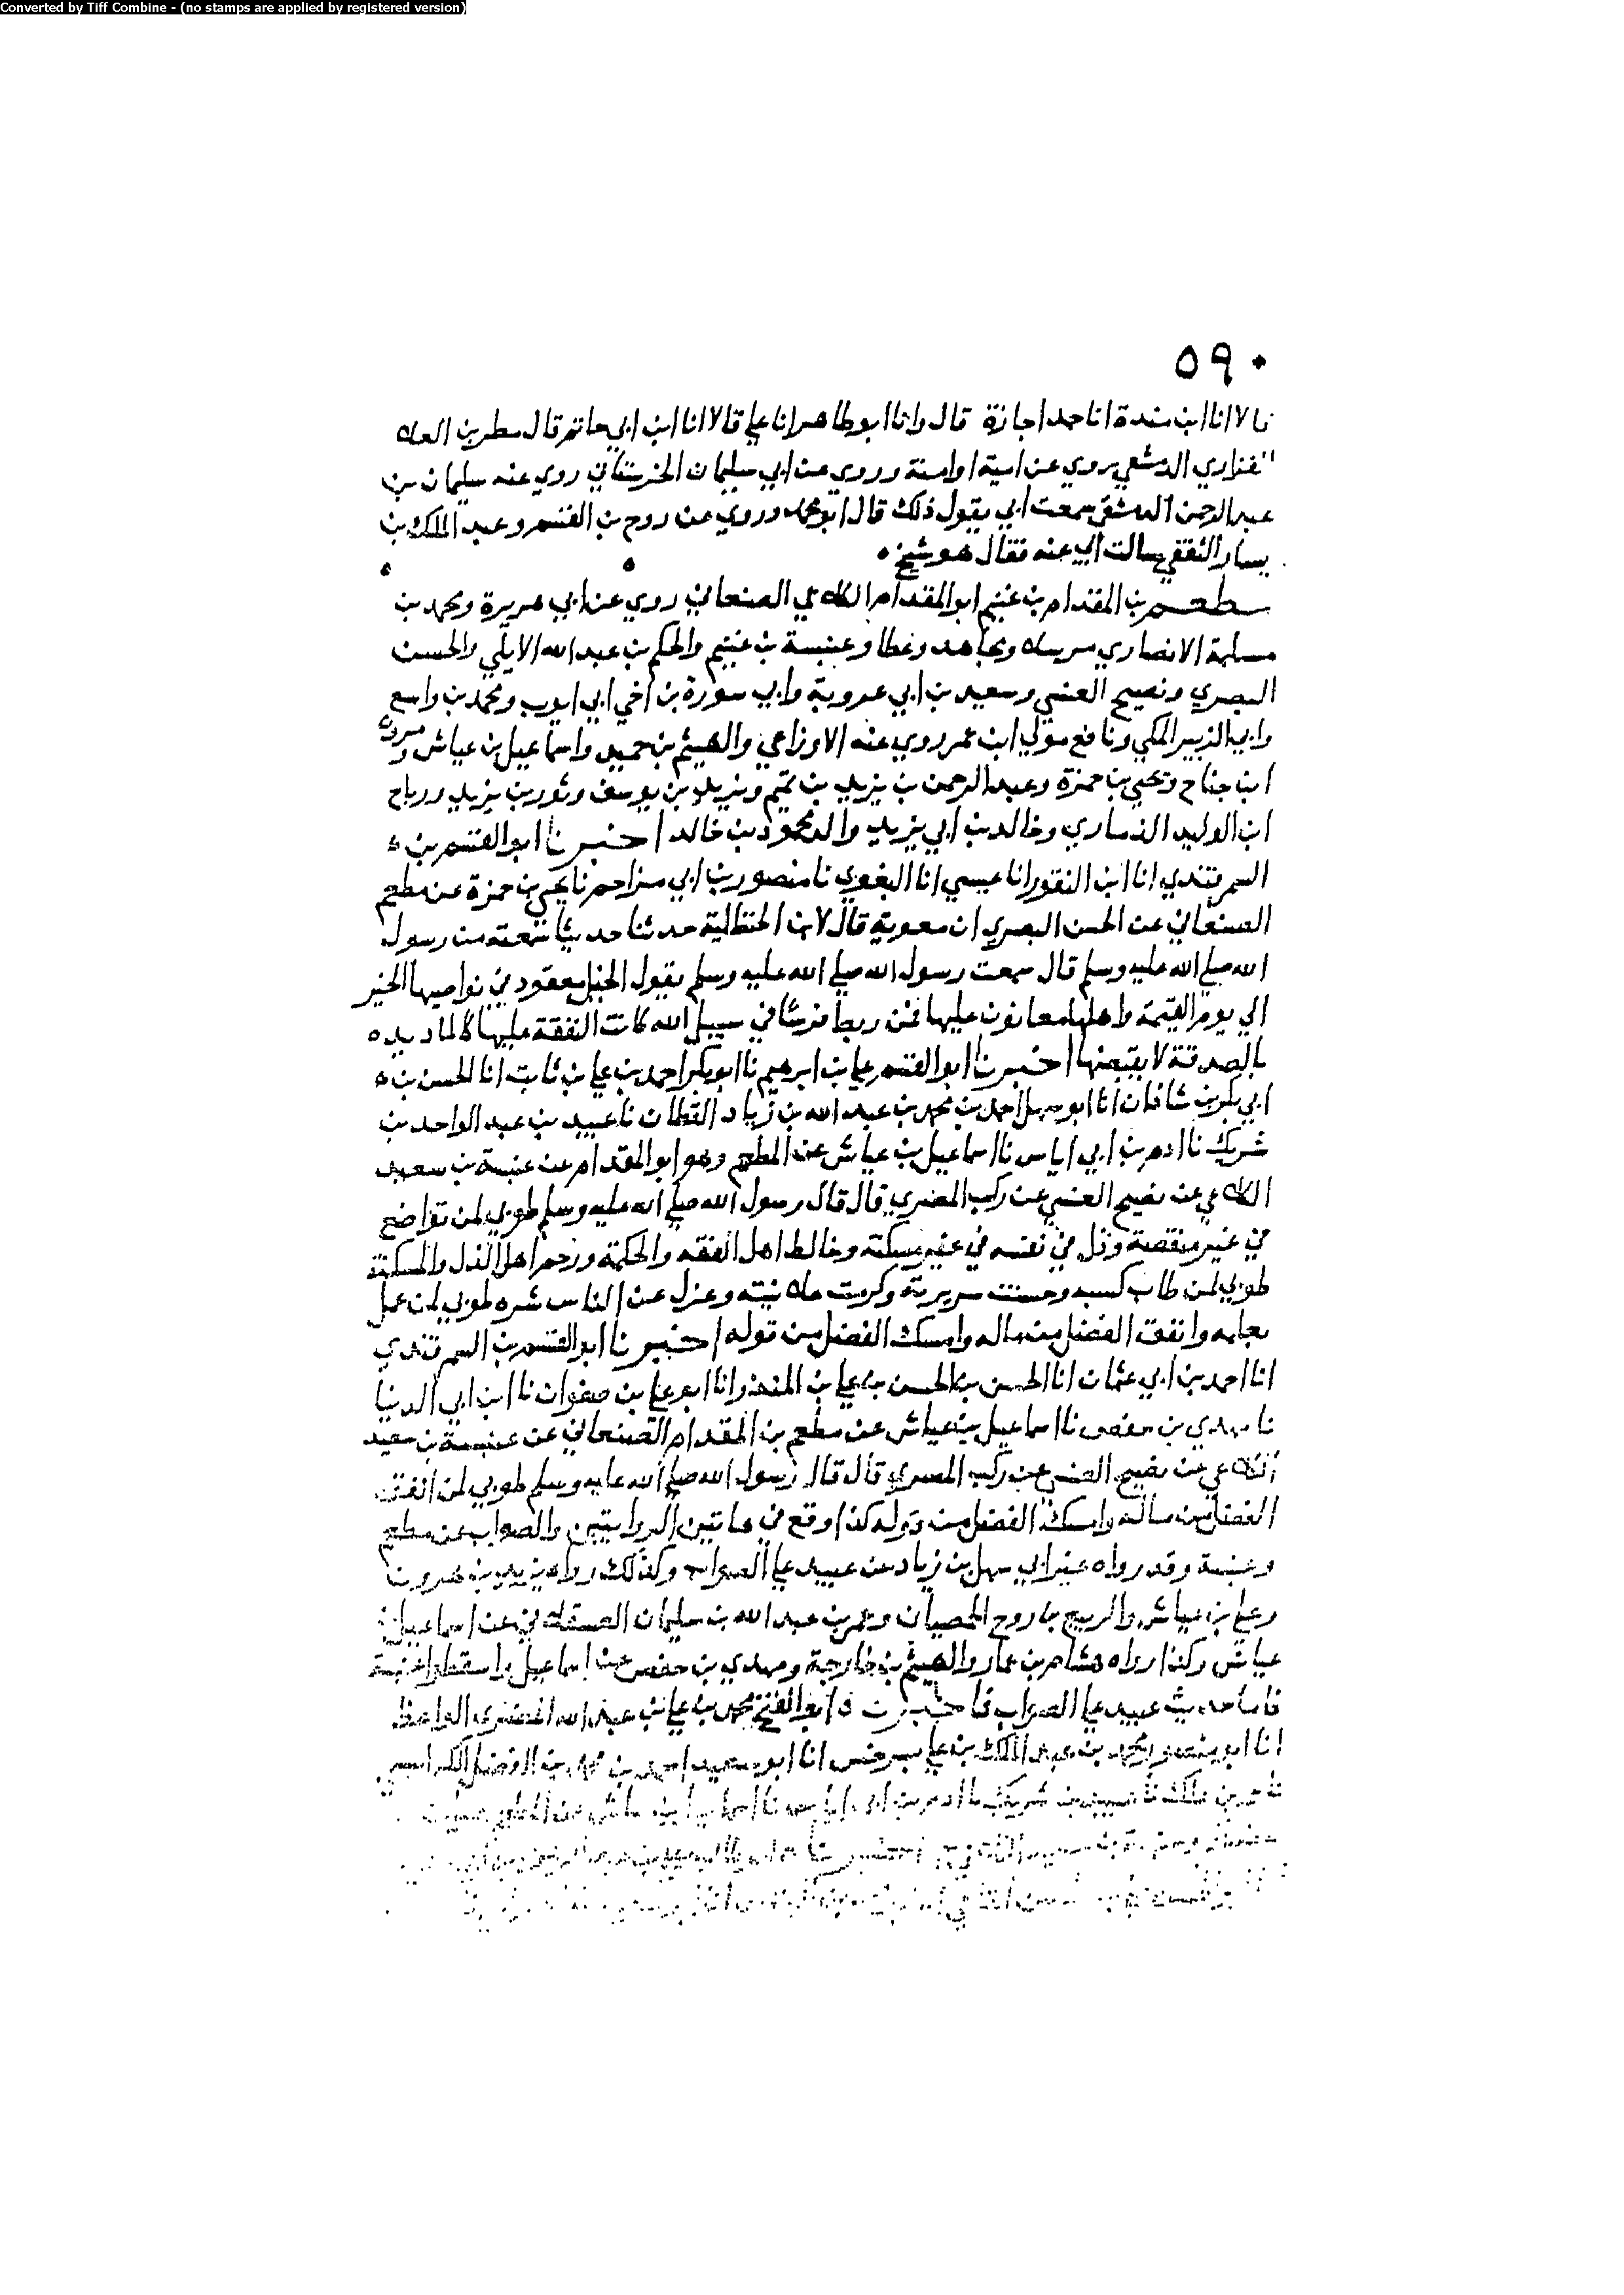 Converted by Tiff Combine - (no stamps are applied by registered version)
٥٩٠
نا لا انا ابن مندة انا حمد اجازة قال وانا ابو طاهر انا علي قالا انا ابن ابي حاتم قال مطر بن العلا
الفزاري الدمشقي يروي عن امية او امنة وروي عن ابي سليمان الحرستاني روي عنه سليمان بن
عبد الرحمن الدمشقي سمعت ابي يقول ذلك قال ابو محمد وروي عن روح بن القسم وعبد الملك بن
يسار الثقفي سالت ابي عنه فقال هو شيخ ه
مطعم بن المقدام بن غنيم ابو المقدام الكلاعي الصنعاني روي عن ابي هريرة ومحمد بن
مسلمة الانصاري مرسلا ومجاهد وعطا وعنبسة بن غنيم والحكم بن عبد الله الايلي والحسن
البصري ونصيح العنسي وسعيد بن ابي عروبة وابي سورة بن اخي ابي ايوب ومحمد بن واسع
وابي الزبير المكي ونافع مولي ابن عمر روي عنه الاوزاعي والهيثم بن حميد واسماعيل بن عياش ومروان
ابن جناح ويحيي بن حمزة وعبد الرحمن بن يزيد بن تميم ويزيد بن يوسف وثور بن يزيد ورباح
ابن الوليد الذماري وخالد بن ابي يزيد والد محمود بن خالد اخبرنا ابو القسم بن
السمرقندي انا ابن النقور انا عيسي انا البغوي نا منصور بن ابي مزاحم نا يحيي بن حمزة عن مطعم
الصنعاني عن الحسن البصري ان معوية قال لابن الحنظلية حدثنا حديثا سمعته من رسول
الله صلي الله عليه وسلم قال سمعت رسول الله صلي الله عليه وسلم يقول الخيل معقود في نواصيها الخير
الي يوم القيمة واهلها معانون عليها فمن ربط فرسا في سبيل الله كانت النفقة عليها كالماد يده
بالصدقة لا يقبضها اخبرنا ابو القسم علي بن ابرهيم نا ابو بكر احمد بن علي بن ثابت انا الحسن بن
ابي بكر بن شاذان انا ابو سهل احمد بن محمد بن عبد الله بن زياد القطان نا عبيد بن عبد الواحد بن
شريك نا ادم بن ابي اياس نا اسماعيل بن عياش عن المطعم وهو ابو المقدام عن عنبسة بن سعيد
الكلاعي عن نصيح العنسي عن ركب المصري قال قال رسول الله صلي الله عليه وسلم طوبي لمن تواضع
في غير منقصة وذل في نفسه في غير مسكنة وخالط اهل الفقه والحكمة ورحم اهل الذل والمسكنة
طوبي لمن طاب كسبه وحسنت سريرته وكرمت علانيته وعزل عن الناس شره طوبي لمن عمل
بعلمه وانفق الفضل من ماله وامسك الفضل من قوله اخبرنا ابو القسم بن السمرقندي
انا احمد بن ابي عثمان انا الحسن بن الحسن بن علي بن المنذر انا ابو علي بن صفوان نا ابن ابي الدنيا
نا مهدي بن حفص نا اسماعيل بن عياش عن مطعم بن المقدام الصنعاني عن عنبسة بن سعيد
الكلاعي عن نصيح العنسي عن ركب المصري قال قال رسول الله صلي الله عليه وسلم طوبي لمن انفق
الفضل من ماله وامسك الفضل من قوله كذا وقع في هاتين الروايتين والصواب عن مطعم
وعنبسة وقد رواه غير ابي سهل بن زياد عن عبيد علي الصواب وكذلك رواه يزيد بن هرون
وعلي بن عياش والربيع بن روح الحمصيان وعمر بن عبد الله بن سليمان العسقلاني عن اسماعيل بن
عياش وكذا رواه هشام بن عمار والهيثم بن خارجة ومهدي بن حفص عن اسماعيل واسقطوا عنبسة
فاما حديث عبيد علي الصواب فاخبرنا ابو الفتح محمد بن علي بن عبد الله المضري الواعظ
انا ابو محمد بن عبد الملك بن علي انا ابو سعيد احمد بن محمد بن الفضل الكرابيسي
نا عبيد بن شريك نا ادم بن ابي اياس نا اسماعيل بن عياش عن المطعم